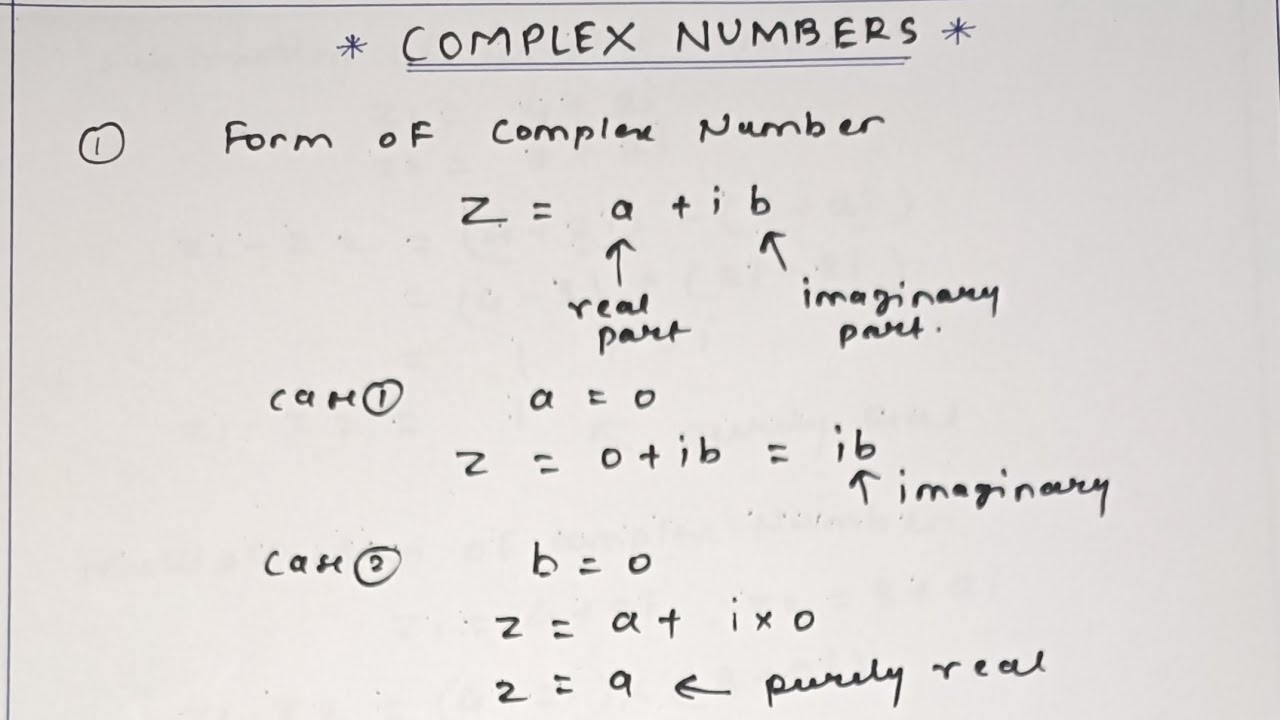 * COMPLEX NUMBERS *
① Form of Complex Number
Z = a + i b
↑ ↑
real part imaginary part.
case ① a = 0
z = 0 + ib = ib
↑ imaginary
case ② b = 0
z = a + i × 0
z = a ← purely real